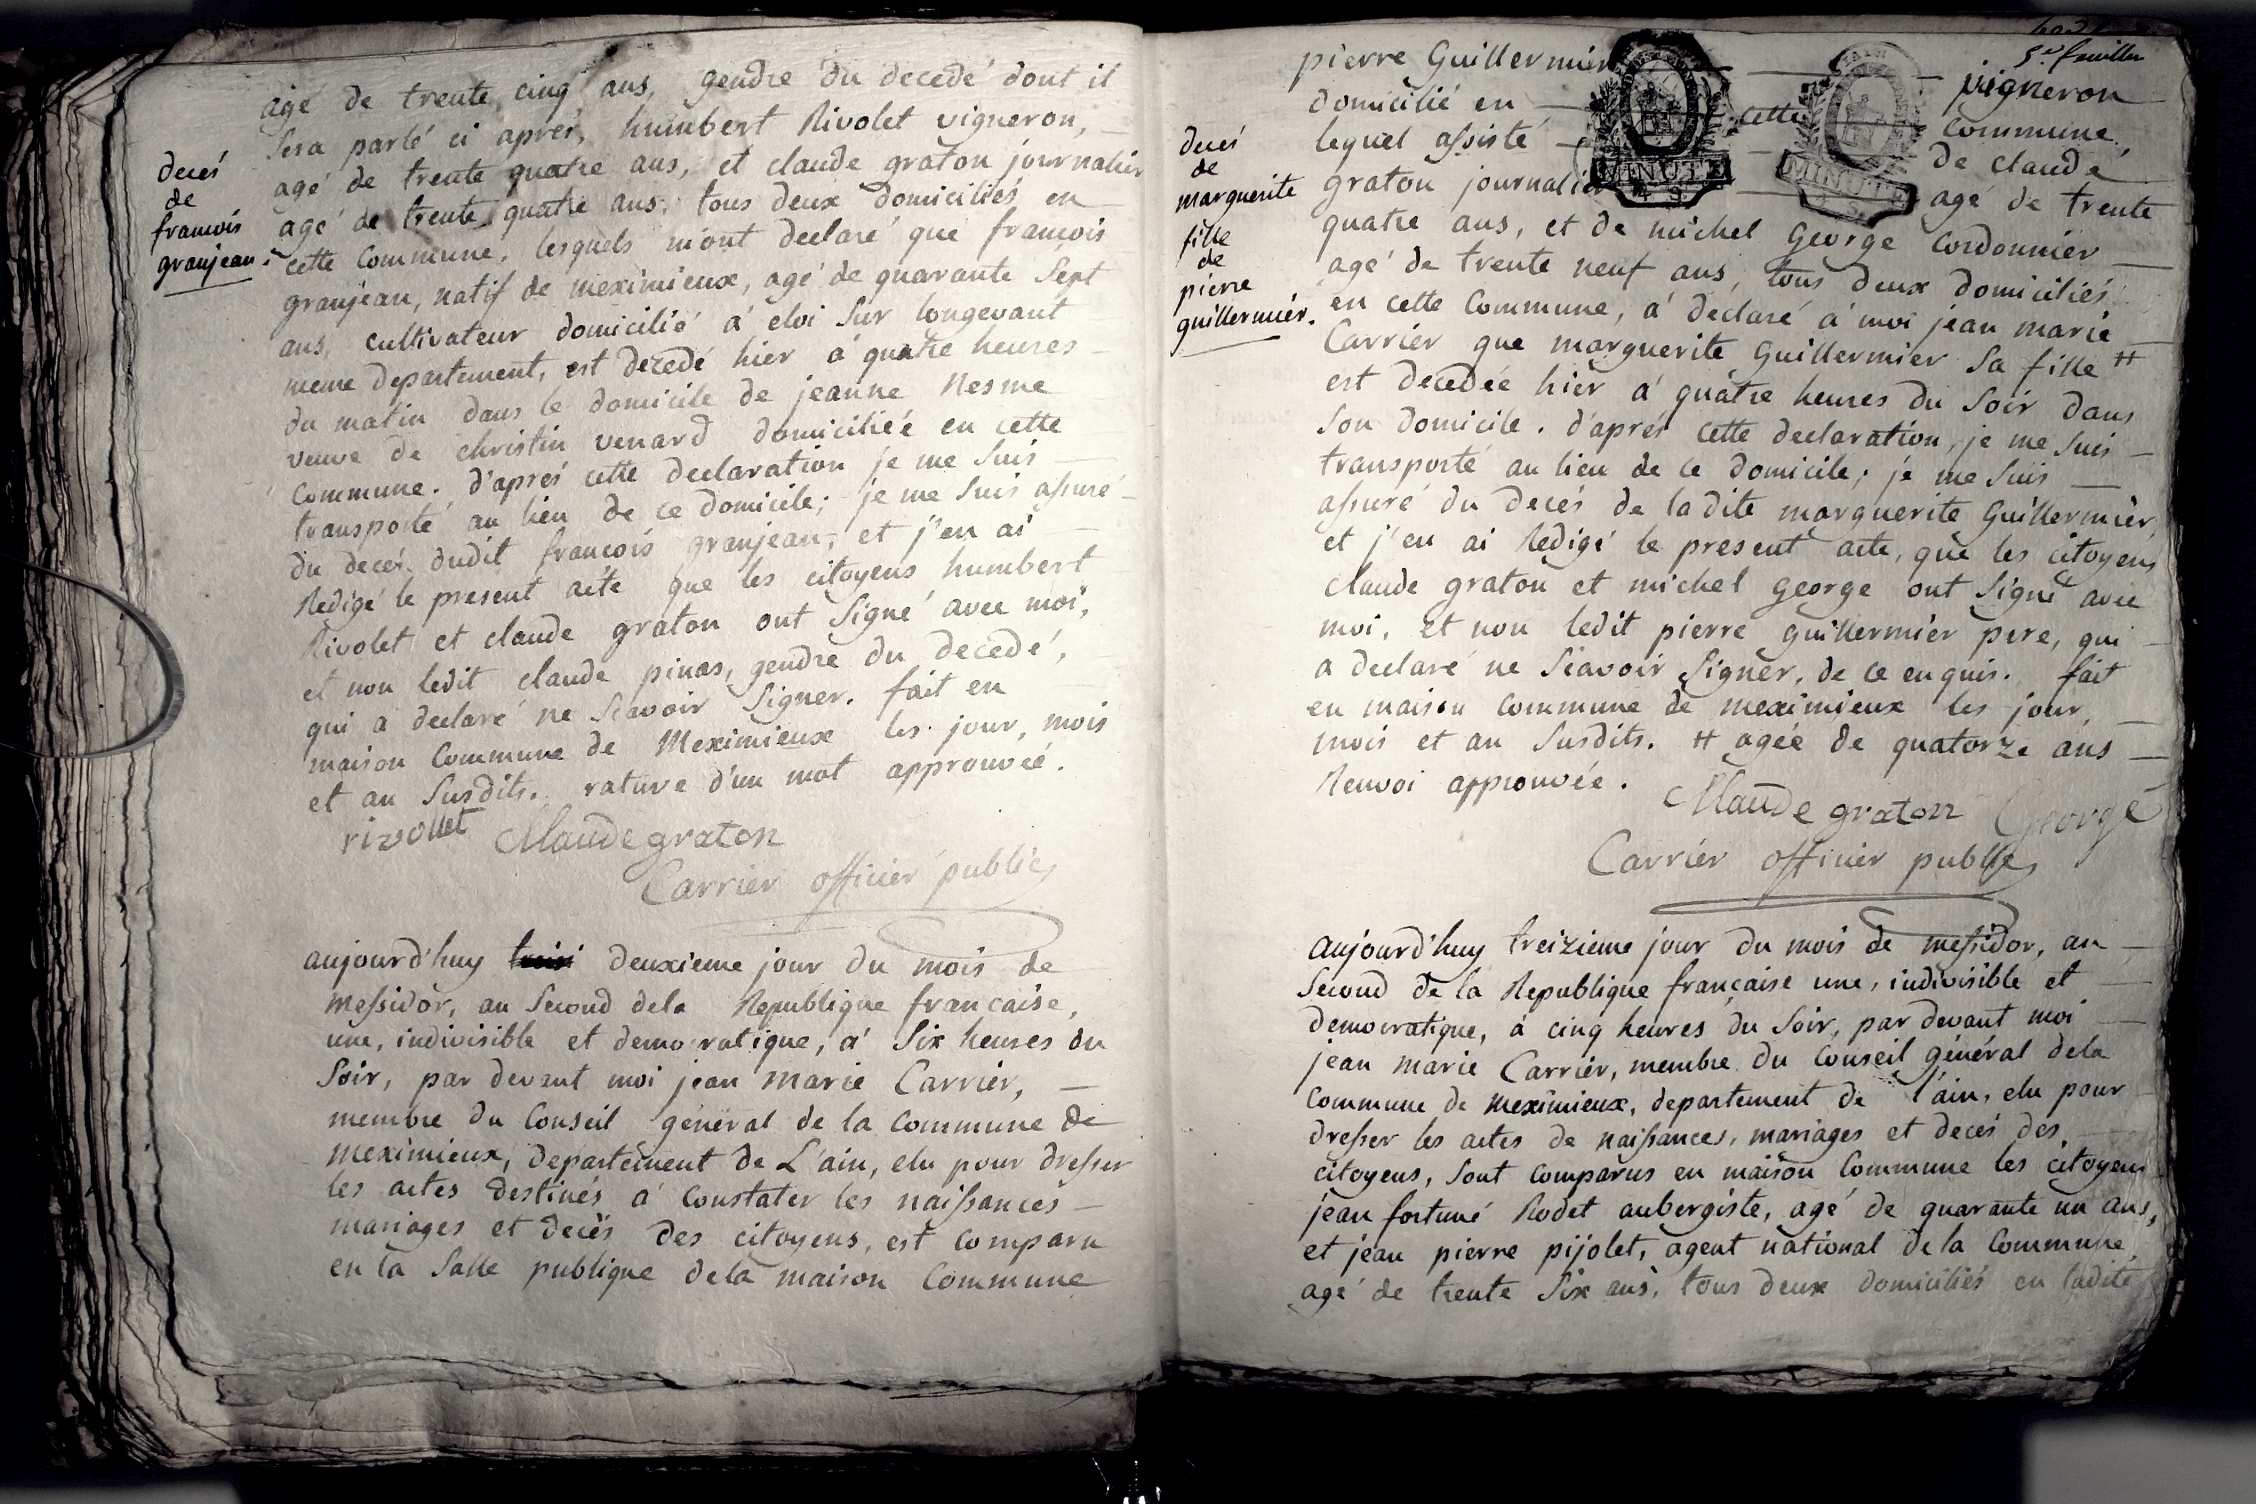 agé de trente cinq ans, gendre du decedé dont il
sera parlé ci aprés, humbert Rivolet vigneron,
agé de trente quatre ans, et claude graton journalier
agé de trente quatre ans, tous deux domiciliés en
cette Commune, lesquels m'ont declaré que francois
granjean, natif de meximieux, agé de quarante sept
ans, cultivateur domicilié á eloi sur
meme departement, est decedé hier á quatre heures
du matin dans le domicile de jeanne Nesme
veuve de christin venard domiciliéé en cette
Commune. d'aprés cette declaration je me suis
transporté au lieu de ce domicile; je me suis assuré
du decés dudit francois granjean, et j'en ai
Redigé le present acte que les citoyens humbert
Rivolet et claude graton ont signé avec moi,
et non ledit claude pinas, gendre du decedé,
qui a declaré ne scavoir signer. fait en
maison Commune de Meximieux les jour, mois
et an susdits. rature d'un mot approuvéé.
rivollet Claude graton
Carrier officier public
decés
de
francois
granjean.
aujourd'huy troisi deuxieme jour du mois de
messidor, an second dela Republique francaise,
une, indivisible et democratique, á six heures du
soir, par devant moi jean marie Carrier,
membre du Conseil général de la Commune de
meximieux, departement de L'ain, elu pour dresser
les actes destinés á constater les naissances
mariages et decès des citoyens, est comparu
en la salle publique dela maison Commune
5e. feuillet
pierre Guillermier vigneron
domicilié en cette Commune,
lequel assisté de claude
graton journalier agé de trente
MINUTE
MINUTE
quatre ans, et de michel George Cordonnier
agé de trente neuf ans, tous deux domiciliés
en cette Commune, á declaré á moi jean marie
Carrier que marguerite Guillermier sa fille #
est decedéé hier á quatre heures du soir dans
son domicile. d'aprés cette declaration, je me suis
transporté au lieu de ce domicile; je me suis
assuré du decés de ladite marguerite Guillermier,
et j'en ai Redigé le present acte, que les citoyens
claude graton et michel george ont signé avec
moi, et non ledit pierre guillermier pere, qui
a declaré ne scavoir signer, de ce enquis. fait
en maison Commune de meximieux les jour,
mois et an susdits. # agéé de quatorze ans
Renvoi approuvée.
Claude graton George
Carrier officier public
decés
de
marguerite
fille
de
pierre
guillermier.
aujourd'huy treizieme jour du mois de messidor, an
second de la Republique française une, indivisible et
democratique, á cinq heures du soir, par devant moi
jean marie Carrier, membre du Conseil général dela
Commune de meximieux, departement de l'ain, elu pour
dresser les actes de naissances, mariages et decés des
citoyens, sont comparus en maison Commune les citoyens
jean fortuné Rodet aubergiste, agé de quarante un ans,
et jean pierre pijolet, agent national dela Commune,
agé de trente six ans, tous deux domiciliés en ladite